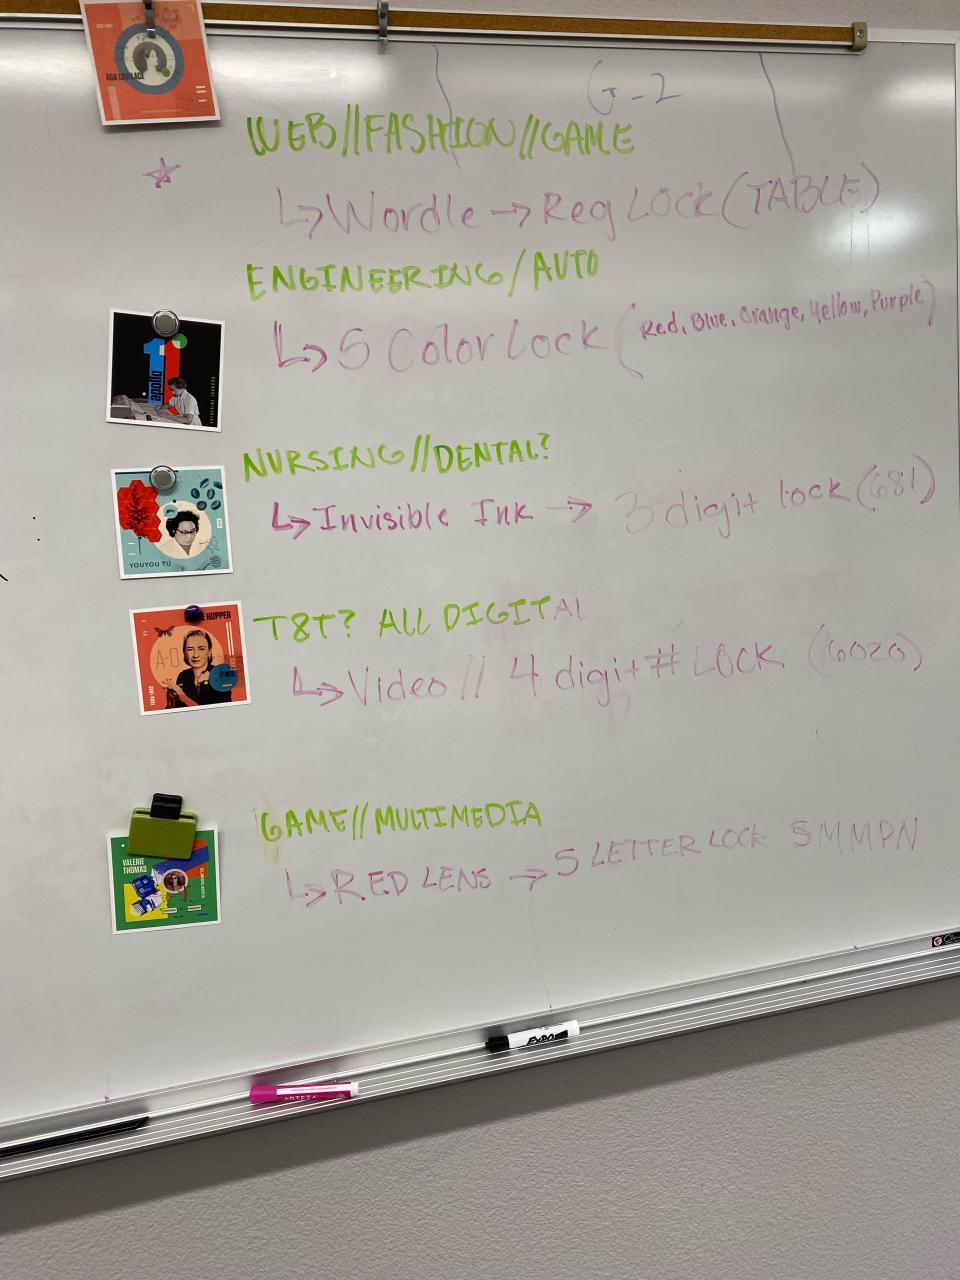 ADA LOVELACE
G-2
WEB//FASHION//GAME
↳Wordle → Reg LOCK (TABLE)
ENGINEERING/AUTO
↳ 5 Color Lock (Red, Blue, Orange, Yellow, Purple)
apollo 11
NURSING//DENTAL?
↳ Invisible Ink → 3 digit lock (681)
YOUYOU TU
HOPPER
A-O
T&T? ALL DIGITAL
↳ Video // 4 digit # LOCK (6020)
GAME//MULTIMEDIA
↳ RED LENS → 5 LETTER LOCK SMMPN
VALERIE
THOMAS
EXPO
ARTEZA